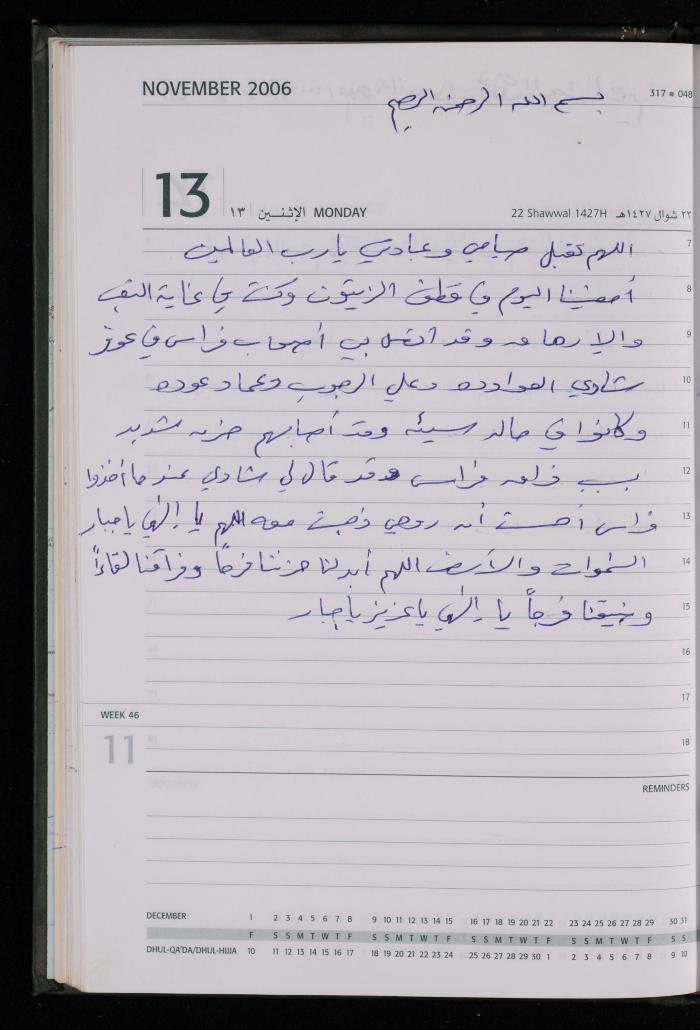 NOVEMBER 2006
317 ■ 048
بسم الله الرحمن الرحيم
13 ١٣ الإثنين MONDAY 22 Shawwal 1427H ٢٢ شوال ١٤٢٧هـ
7 اللهم تقبل صيامي وعبادتي يا رب العالمين
8 أمضينا اليوم في قطف الزيتون وكنت في غاية التعب
9 والإرهاق وقد اتصل بي أصحاب فراس في عوفر
10 شادي العواودة وعلي الرجوب وعماد عوده
11 وكانوا في حالة سيئة وقد أصابهم حزن شديد
12 بسبب فراق فراس وقد قال لي شادي عندما أخذوا
13 فراس أحسست أن روحي ذهبت معه اللهم يا إلهي يا جبار
14 السموات والأرض اللهم أبدلنا حزننا فرحاً وفراقنا لقاءاً
15 وضيقنا فرجاً يا إلهي يا عزيز يا جبار
16
17
WEEK 46
11
18
REMINDERS
DECEMBER 1 2 3 4 5 6 7 8 9 10 11 12 13 14 15 16 17 18 19 20 21 22 23 24 25 26 27 28 29 30 31
F S S M T W T F S S M T W T F S S M T W T F S S M T W T F S S
DHUL-QA'DA/DHUL-HIJJA 10 11 12 13 14 15 16 17 18 19 20 21 22 23 24 25 26 27 28 29 30 1 2 3 4 5 6 7 8 9 10